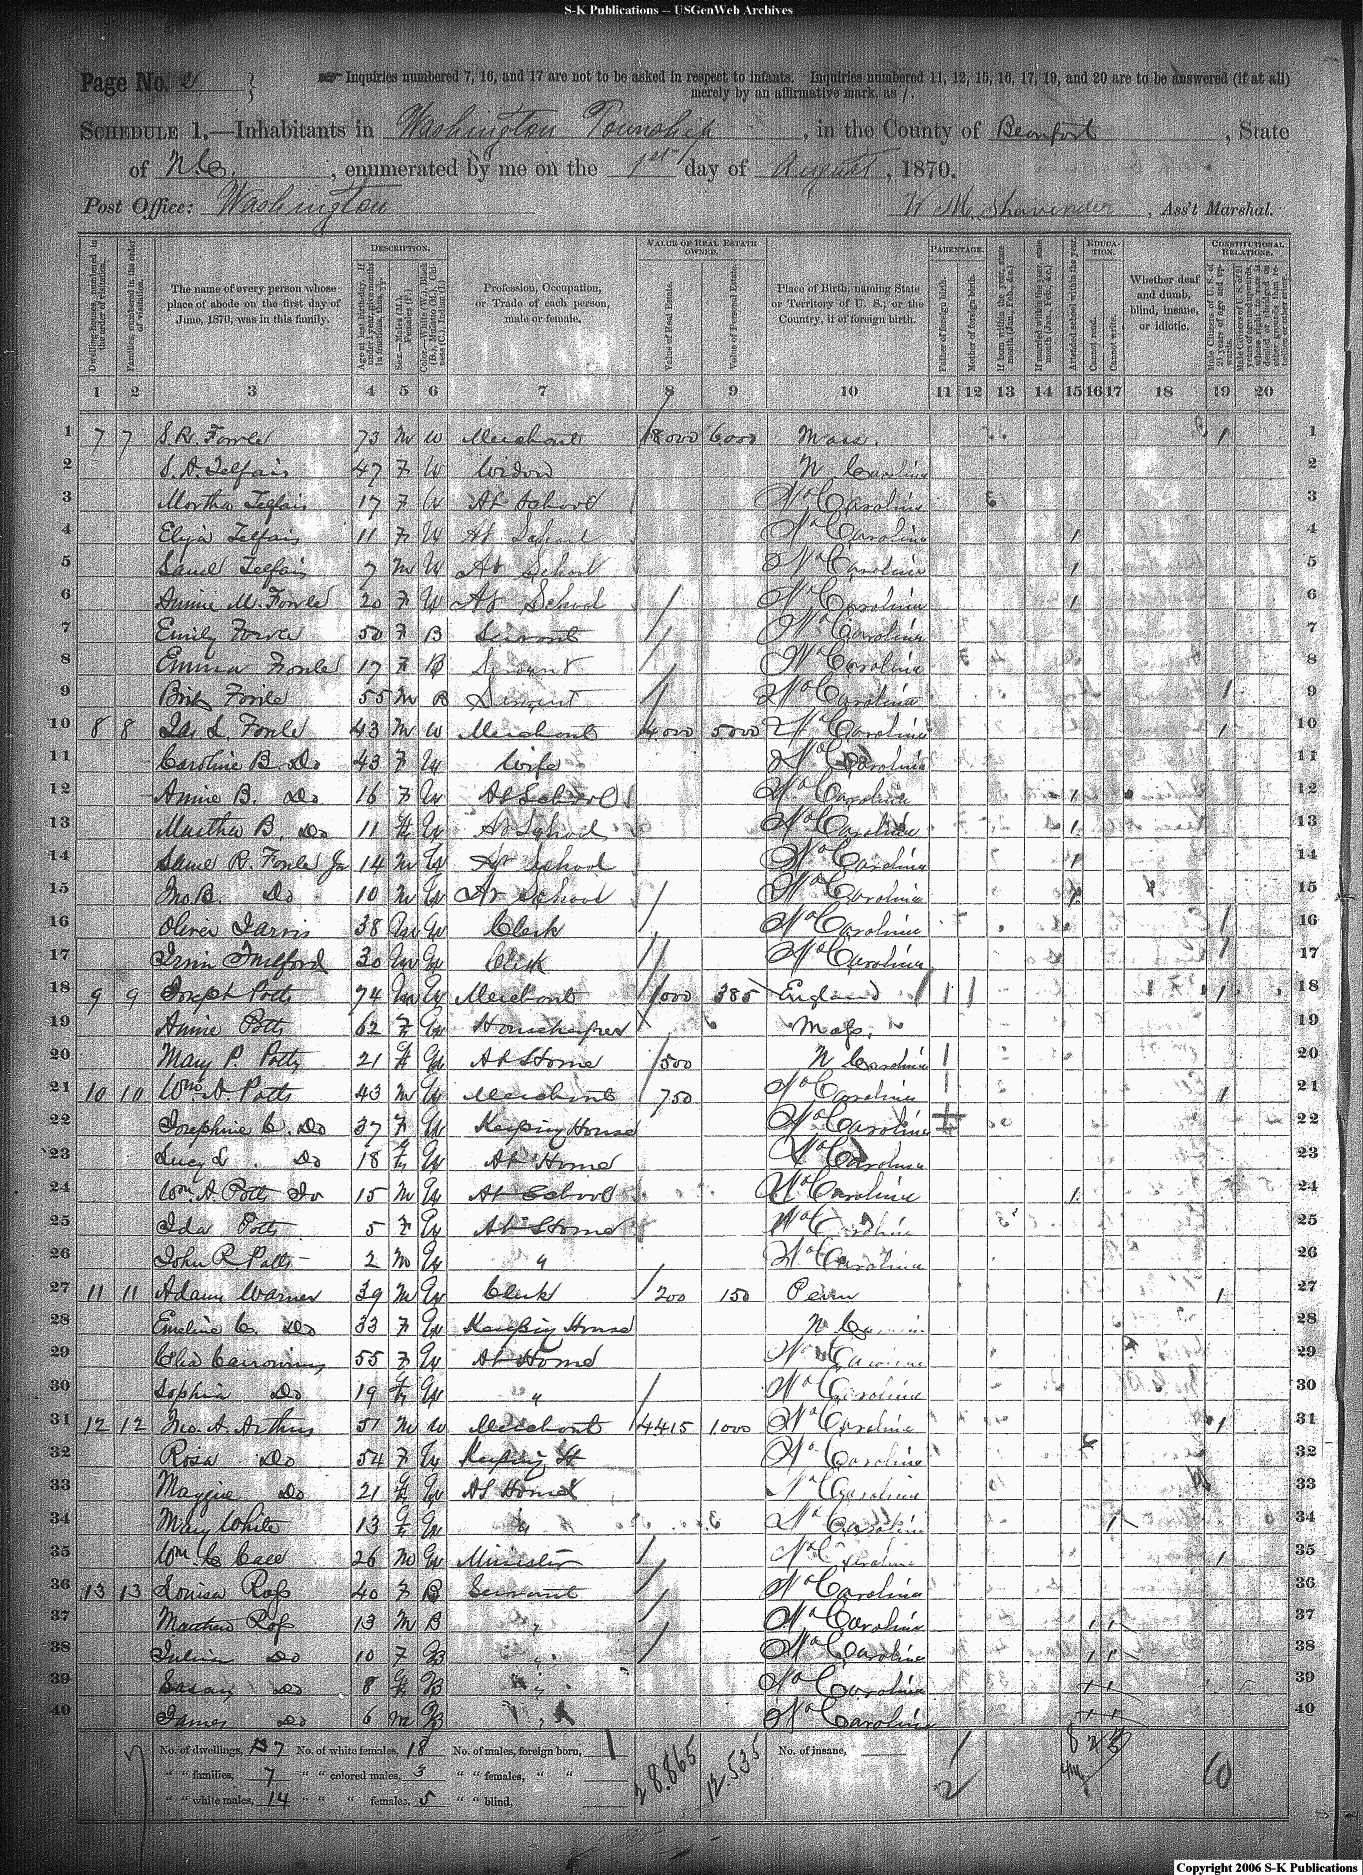 S-K Publications -- USGenWeb Archives
Page No. 2
Inquiries numbered 7, 16, and 17 are not to be asked in respect to infants. Inquiries numbered 11, 12, 15, 16, 17, 19, and 20 are to be answered (if at all) merely by an affirmative mark, as /.
SCHEDULE 1.—Inhabitants in Washington Township, in the County of Beaufort, State
of N.C., enumerated by me on the 1st day of August, 1870.
Post Office: Washington W M Shavender, Ass't Marshal.
DESCRIPTION. VALUE OF REAL ESTATE OWNED. PARENTAGE. EDUCATION. CONSTITUTIONAL RELATIONS.
The name of every person whose place of abode on the first day of June, 1870, was in this family.
Profession, Occupation, or Trade of each person, male or female.
Value of Real Estate. Value of Personal Estate.
Place of Birth, naming State or Territory of U. S.; or the Country, if of foreign birth.
Father of foreign birth. Mother of foreign birth.
Attended school within the year. Cannot read. Cannot write.
Whether deaf and dumb, blind, insane, or idiotic.
1 2 3 4 5 6 7 8 9 10 11 12 13 14 15 16 17 18 19 20
1 7 7 S. R. Fowle 73 M W Merchant 18000 6000 Mass. 1 1
2 S. A. Telfair 47 F W Widow N Carolina 2
3 Martha Telfair 17 F W At School No Carolina 3
4 Eliza Telfair 11 F W At School No Carolina 1 4
5 Saml Telfair 7 M W At School No Carolina 1 5
6 Annie M. Fowle 20 F W At School No Carolina 1 6
7 Emily Fowle 50 F B Servant No Carolina 7
8 Emma Fowle 17 F B Servant No Carolina 8
9 Fowle 55 M B Servant No Carolina 1 9
10 8 8 Jas. L. Fowle 43 M W Merchant 4000 5000 No Carolina 1 10
11 Caroline B. Do 43 F W Wife No Carolina 11
12 Annie B. Do 16 F W At School No Carolina 1 12
13 Martha B. Do 11 F W At School No Carolina 1 13
14 Saml R. Fowle Jr 14 M W At School No Carolina 1 14
15 Jno. B. Do 10 M W At School No Carolina 1 15
16 Oliver Jarvis 38 M W Clerk No Carolina 1 16
17 Irvin Fulford 30 M W Clerk No Carolina 1 17
18 9 9 Joseph Potts 74 M W Merchant 1000 385 England 1 1 1 18
19 Annie Potts 62 F W Housekeeper Mass. 19
20 Mary P. Potts 21 F W At Home 500 N Carolina 1 20
21 10 10 Wm. A. Potts 43 M W Merchant 750 No Carolina 1 1 21
22 Josephine C. Do 37 F W Keeping House No Carolina 22
23 Lucy L. Do 18 F W At Home No Carolina 23
24 Wm A. Potts Jr 15 M W At School No Carolina 1 24
25 Ida Potts 5 F W At Home No Carolina 25
26 John R Potts 2 M W " No Carolina 26
27 11 11 Adam Warner 39 M W Clerk 200 150 Penn 1 27
28 Emeline C. Do 33 F W Keeping House N Carolina 28
29 55 F W At Home No Carolina 29
30 Sophia Do 19 F W " No Carolina 30
31 12 12 Jno. A. Arthur 51 M W Merchant 4415 1000 No Carolina 1 31
32 Rosa Do 54 F W Keeping H No Carolina 32
33 Maggie Do 21 F W At Home No Carolina 33
34 Mary White 13 F W " No Carolina 1 34
35 Wm. C. Call 26 M W Minister No Carolina 1 35
36 13 13 Louisa Ross 40 F B Servant No Carolina 36
37 Matthew Ross 13 M B " No Carolina 1 1 37
38 Julia Do 10 F B " No Carolina 1 1 38
39 Susan Do 8 F B " No Carolina 1 1 39
40 James Do 6 M B " No Carolina 1 1 40
No. of dwellings, 7 No. of white females, 18 No. of males, foreign born, 1 28.865 12.535 No. of insane,
" " families, 7 " " colored males, 3 " " females, " " 2 10
" " white males, 14 " " " females, 5 " " blind,
Copyright 2006 S-K Publications